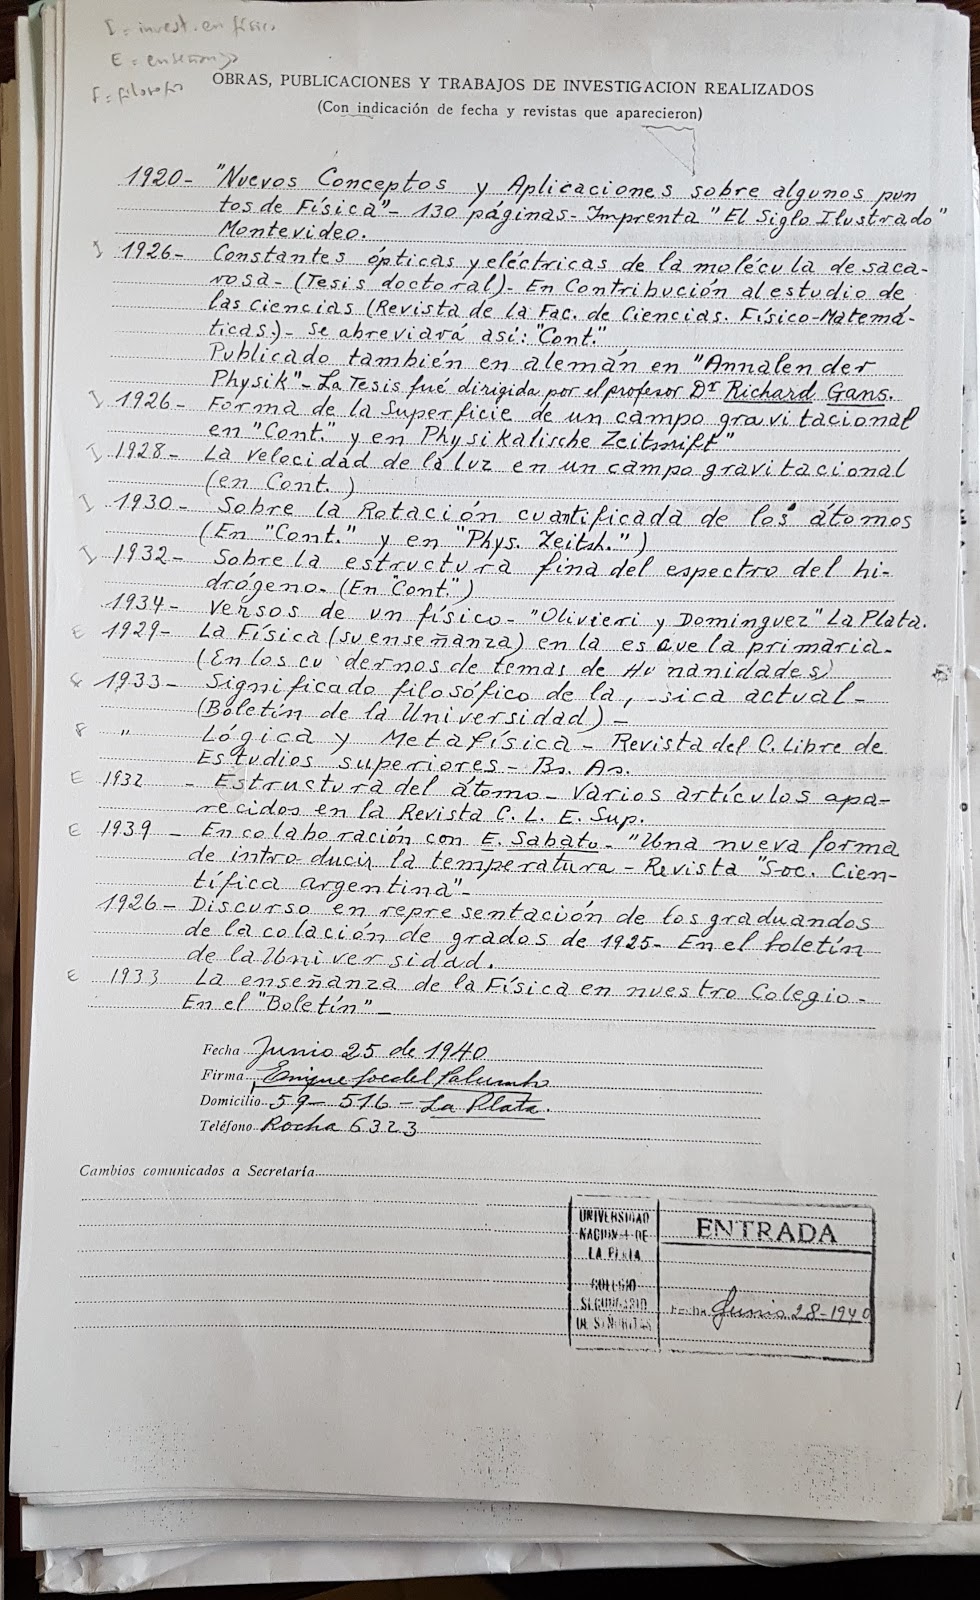 I = invest. en física
E = enseñanza
F = filosofía
OBRAS, PUBLICACIONES Y TRABAJOS DE INVESTIGACION REALIZADOS
(Con indicación de fecha y revistas que aparecieron)
1920- "Nuevos Conceptos y Aplicaciones sobre algunos pun
tos de Física"- 130 páginas- Imprenta "El Siglo Ilustrado"
Montevideo.
I 1926- Constantes ópticas y eléctricas de la molécula de saca-
rosa- (Tesis doctoral)- En Contribución al estudio de
las ciencias (Revista de la Fac. de Ciencias. Físico-Matemá-
ticas.)- Se abreviará así: "Cont."
Publicado también en alemán en "Annalen der
Physik"- La Tesis fué dirigida por el profesor Dr Richard Gans.
I 1926- Forma de la Superficie de un campo gravitacional
en "Cont." y en Physikalische Zeitsrift"
I 1928- La velocidad de la luz en un campo gravitacional
(en Cont.)
I 1930- Sobre la Rotación cuantificada de los átomos
(En "Cont." y en "Phys. Zeitsh.")
I 1932- Sobre la estructura fina del espectro del hi-
drógeno. (En "Cont.")
1934- Versos de un físico- "Olivieri y Dominguez" La Plata.
E 1929- La Física (su enseñanza) en la escuela primaria-
(En los cu dernos de temas de Hu nanidades)
1933- Significado filosófico de la, -sica actual-
(Boletín de la Universidad)-
" Lógica y Metafísica- Revista del C. Libre de
Estudios superiores- Bs. As.
E 1932 - Estructura del átomo- Varios artículos apa-
recidos en la Revista C. L. E. Sup.
E 1939 - En colaboración con E. Sabato- "Una nueva forma
de intro ducir la temperatura- Revista "Soc. Cien-
tífica argentina"-
1926- Discurso en representación de los graduandos
de la colación de grados de 1925- En el boletín
de la Universidad.
E 1933 La enseñanza de la Física en nuestro Colegio-
En el "Boletín"-
Fecha Junio 25 de 1940
Firma Enrique Loedel Palumbo
Domicilio 59- 516- La Plata.
Teléfono Rocha 6323
Cambios comunicados a Secretaría
UNIVERSIDAD
NACIONAL DE
LA PLATA
COLEGIO
SECUNDARIO
DE SEÑORITAS
ENTRADA
Fecha Junio 28-1940